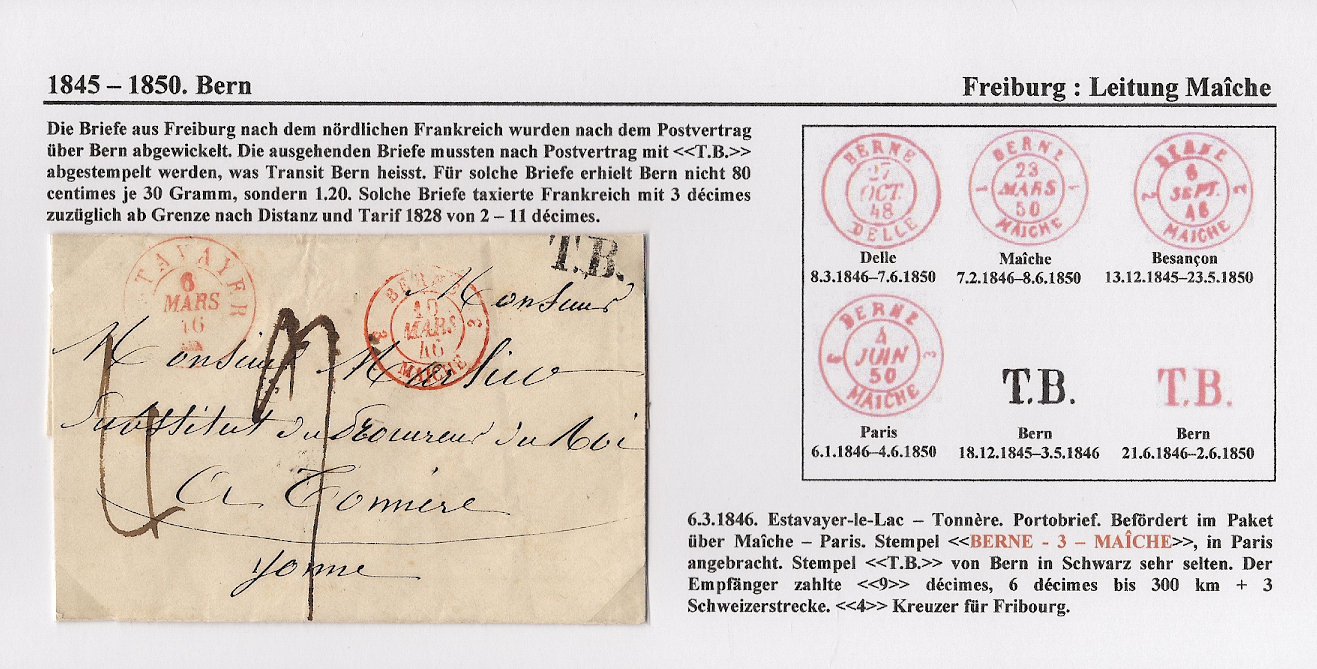 1845 – 1850. Bern
Freiburg : Leitung Maîche
Die Briefe aus Freiburg nach dem nördlichen Frankreich wurden nach dem Postvertrag
über Bern abgewickelt. Die ausgehenden Briefe mussten nach Postvertrag mit <<T.B.>>
abgestempelt werden, was Transit Bern heisst. Für solche Briefe erhielt Bern nicht 80
centimes je 30 Gramm, sondern 1.20. Solche Briefe taxierte Frankreich mit 3 décimes
zuzüglich ab Grenze nach Distanz und Tarif 1828 von 2 – 11 décimes.
BERNE
27
OCT.
48
DELLE
Delle
8.3.1846–7.6.1850
BERNE
23
1 MARS 1
50
MAICHE
Maîche
7.2.1846–8.6.1850
BERNE
6
2 SEPT. 2
46
MAICHE
Besançon
13.12.1845–23.5.1850
BERNE
4
3 JUIN 3
50
MAICHE
Paris
6.1.1846–4.6.1850
T.B.
Bern
18.12.1845–3.5.1846
T.B.
Bern
21.6.1846–2.6.1850
TAVAYER
6
MARS
46
BERNE
10
3 MARS 3
46
MAICHE
T.B.
Monsieur
Monsieur
Substitut du Procureur du Roi
A Tonnère
Yonne
4
6.3.1846. Estavayer-le-Lac – Tonnère. Portobrief. Befördert im Paket
über Maîche – Paris. Stempel <<BERNE - 3 – MAÎCHE>>, in Paris
angebracht. Stempel <<T.B.>> von Bern in Schwarz sehr selten. Der
Empfänger zahlte <<9>> décimes, 6 décimes bis 300 km + 3
Schweizerstrecke. <<4>> Kreuzer für Fribourg.